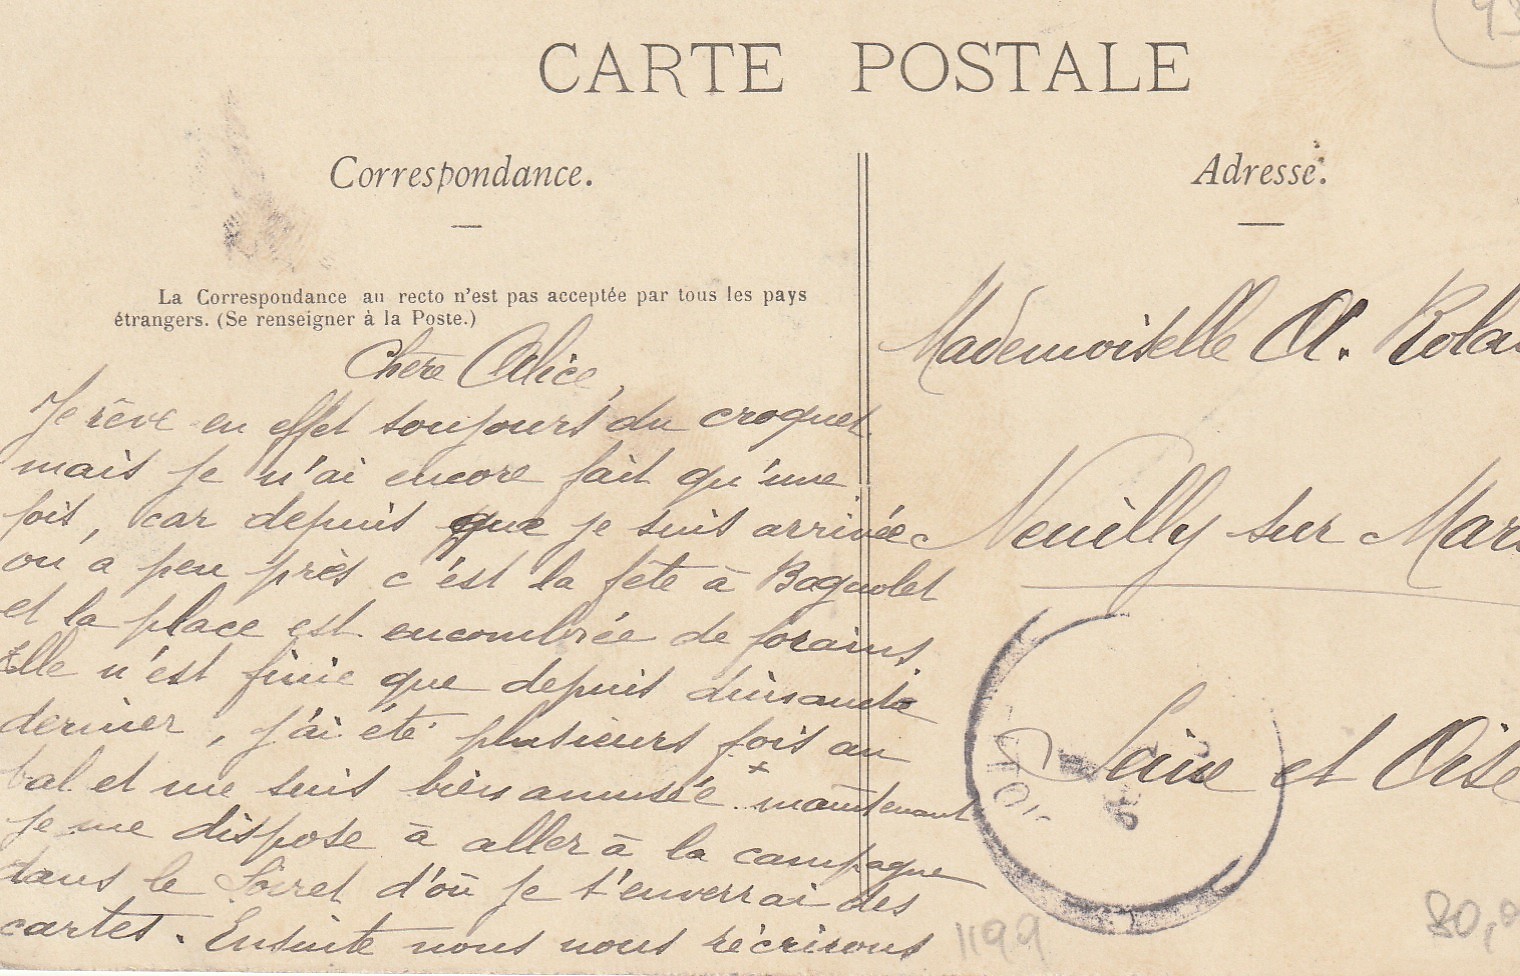 CARTE POSTALE
Correspondance.
La Correspondance au recto n'est pas acceptée par tous les pays
étrangers. (Se renseigner à la Poste.)
Chère Alice,
Je rêve en effet toujours du croquet
mais je n'ai encore fait qu'une
fois, car depuis que je suis arrivée
ou a peu près c'est la fête à Bagnolet
et la place est encombrée de forains,
Elle n'est finie que depuis dimanche
dernier, j'ai été plusieurs fois au
bal et me suis bien amusée. maintenant
je me dispose à aller à la campagne
dans le Loiret d'où je t'enverrai des
cartes. Ensuite nous nous récrirons
Adresse.
Mademoiselle A.
Neuilly sur
Seine et Oise
1199